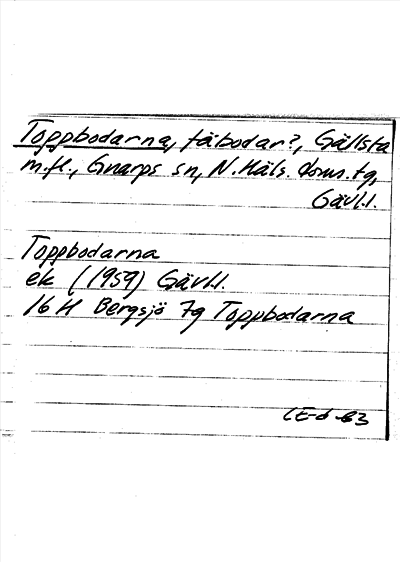 Toppbodarna, fäbodar?, Gällsta
m.fl., Gnarps sn, N. Häls. doms.tg,
Gävl.l.
Toppbodarna
ek (1959) Gävl.l.
16 H Bergsjö 7g Toppbodarna